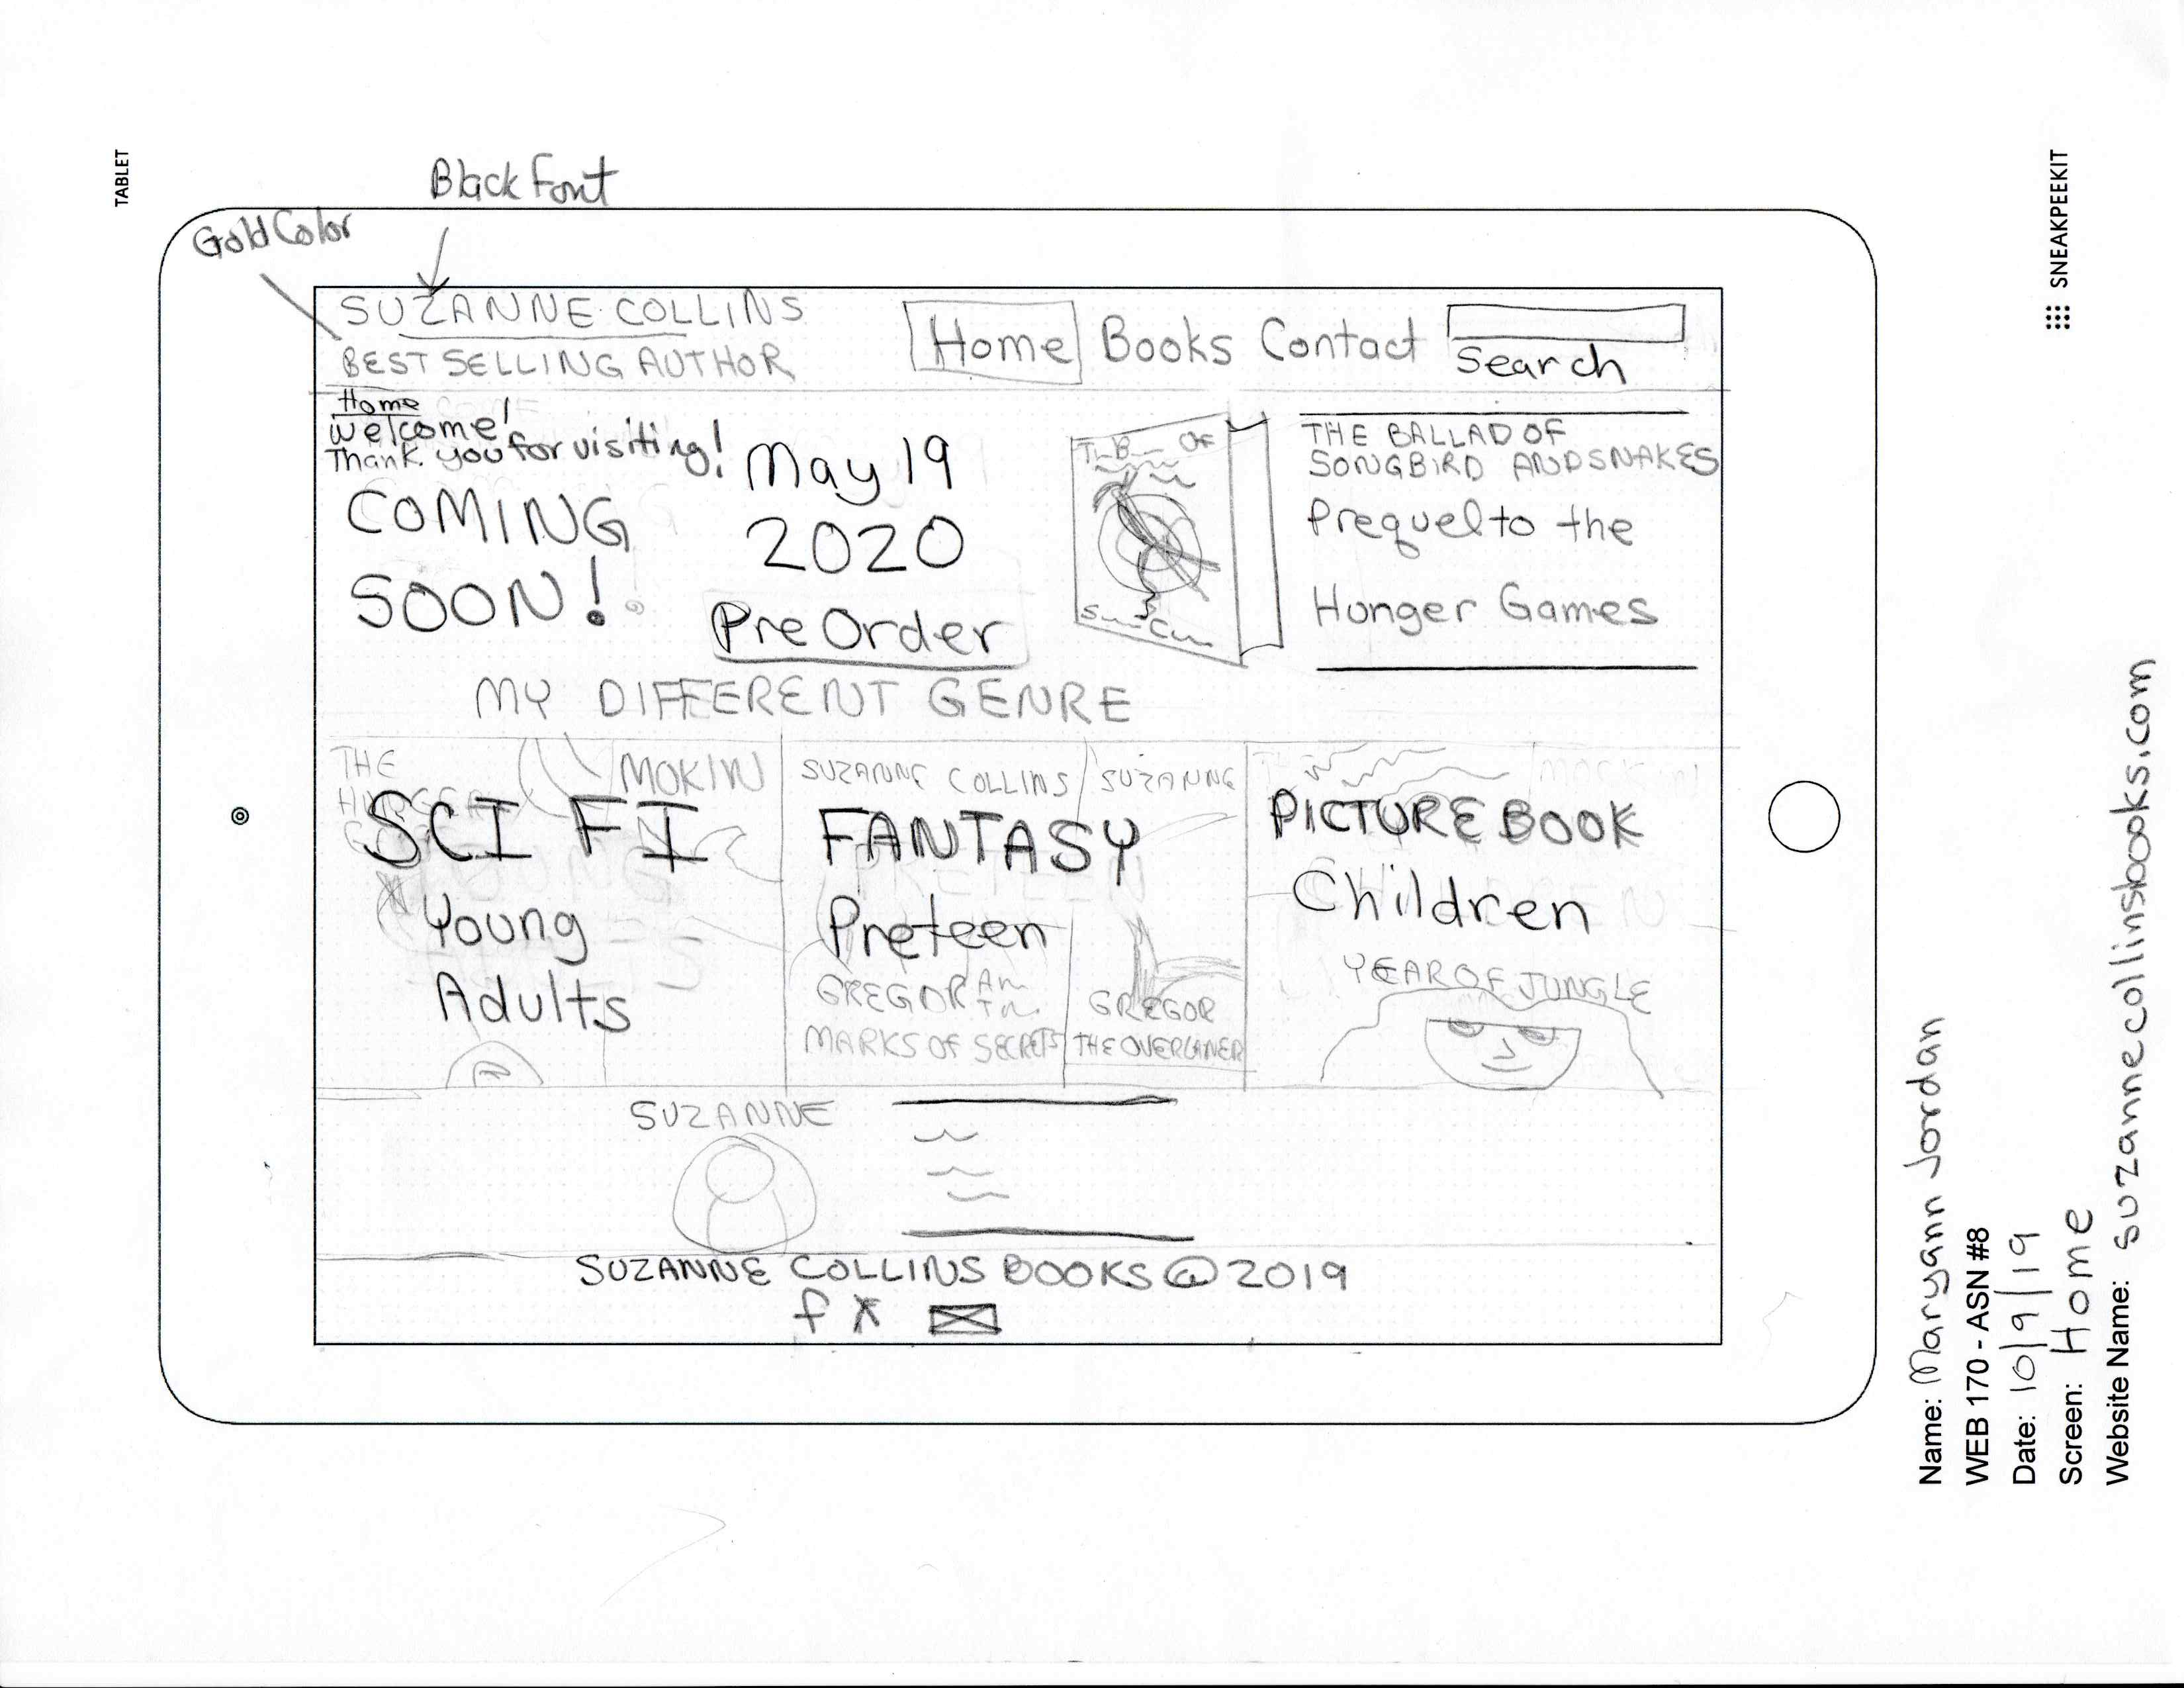 TABLET
SNEAKPEEKIT
Black Font
Gold Color
SUZANNE COLLINS
BEST SELLING AUTHOR
Home Books Contact
Search
Home
Welcome!
Thank you for visiting!
COMING
SOON!
May 19
2020
Pre Order
OF
THE BALLAD OF
SONGBIRD AND SNAKES
Prequel to the
Hunger Games
MY DIFFERENT GENRE
THE
MOKIN
SCI FI
Young
Adults
SUZANNE COLLINS
SUZANNE
FANTASY
Preteen
GREGOR
MARKS OF SECRETS
GREGOR
THE OVERLANER
PICTURE BOOK
Children
YEAR OF JUNGLE
SUZANNE
SUZANNE COLLINS BOOKS © 2019
f
Name: Maryann Jordan
WEB 170 - ASN #8
Date: 10/9/19
Screen: Home
Website Name: suzannecollinsbooks.com